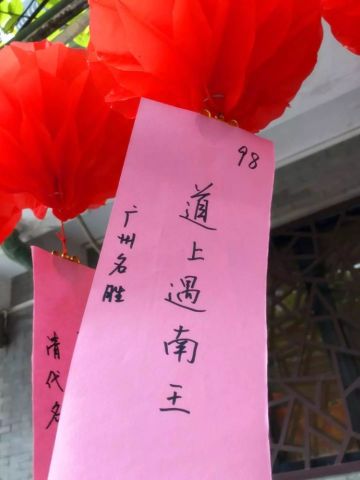 98
道上遇南王
广州名胜
清代名